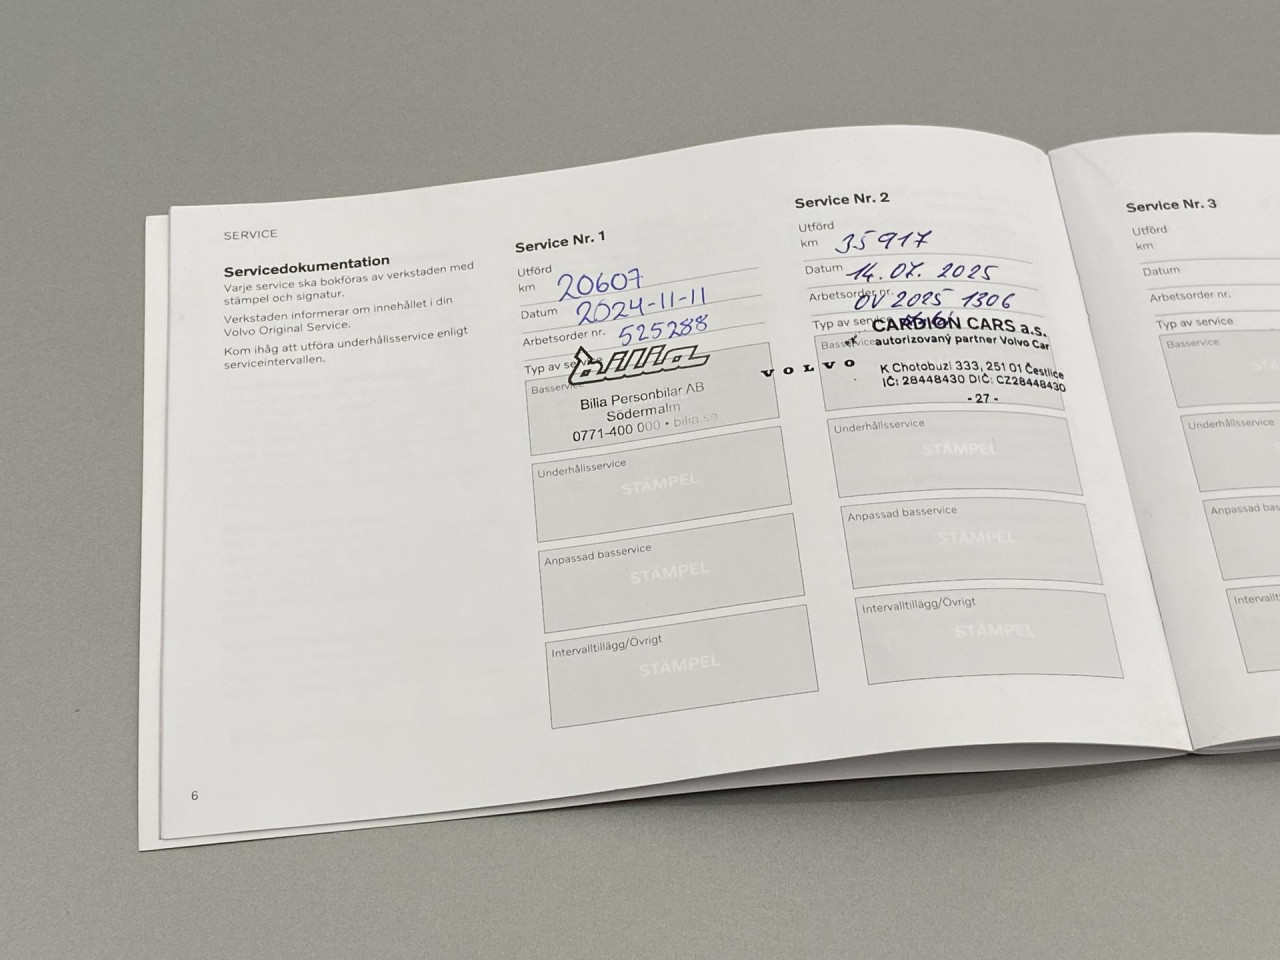 SERVICE
Servicedokumentation
Varje service ska bokföras av verkstaden med
stämpel och signatur.
Verkstaden informerar om innehållet i din
Volvo Original Service.
Kom ihåg att utföra underhållsservice enligt
serviceintervallen.
6
Service Nr. 1
Utförd
km 20607
Datum 2024-11-11
Arbetsorder nr. 525288
Typ av service
Basservice
Bilia
Bilia Personbilar AB
Södermalm
0771-400 000 • bilia.se
Underhållsservice
STÄMPEL
Anpassad basservice
STÄMPEL
Intervalltillägg/Övrigt
STÄMPEL
Service Nr. 2
Utförd
km 35917
Datum 14.07. 2025
Arbetsorder nr. OV 2025 1306
Typ av service
Basservice
CARDION CARS a.s.
autorizovaný partner Volvo Car
VOLVO
K Chotobuzi 333, 251 01 Čestlice
IČ: 28448430 DIČ: CZ28448430
- 27 -
Underhållsservice
STÄMPEL
Anpassad basservice
STÄMPEL
Intervalltillägg/Övrigt
STÄMPEL
Service Nr. 3
Utförd
km
Datum
Arbetsorder nr.
Typ av service
Basservice
Underhållsservice
Anpassad bas
Intervallt